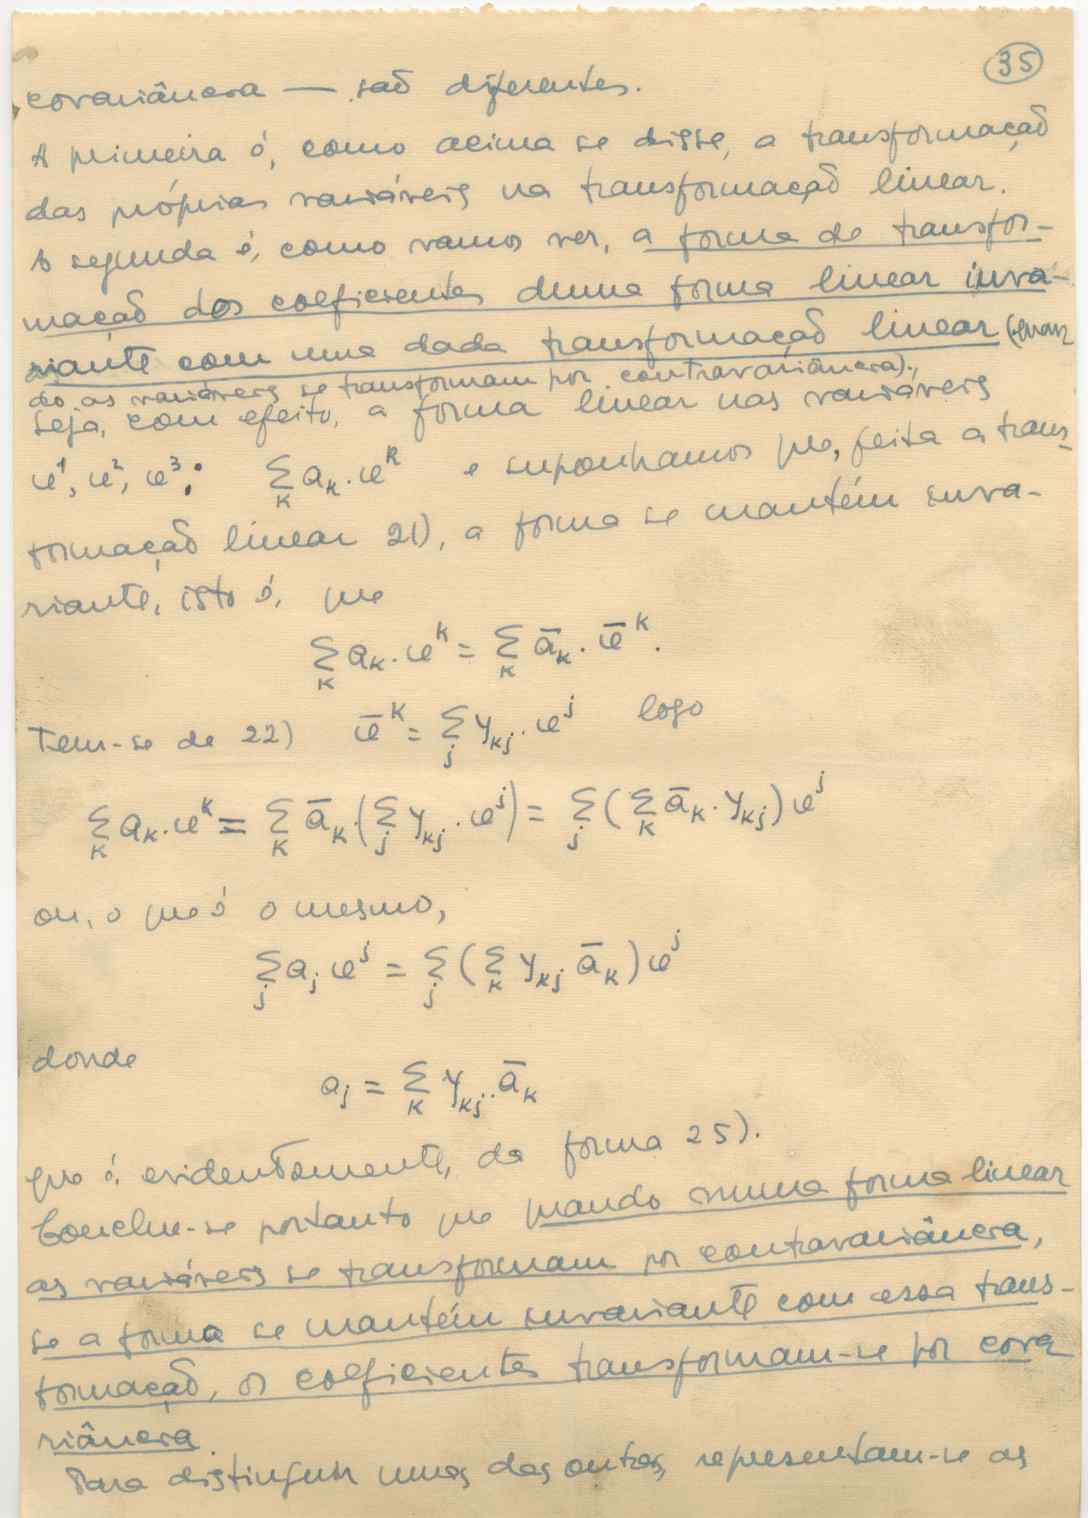 35
covariância — são diferentes.
A primeira é, como acima se disse, a transformação
das próprias variáveis na transformação linear.
A segunda é, como vamos ver, a forma de transfor-
mação dos coeficientes duma forma linear inva-
riante com uma dada transformação linear (quan
do as variáveis se transformam por contravariância).
Seja, com efeito, a forma linear nas variáveis
u¹, u², u³: Σ_k a_k · u^k e suponhamos que, feita a trans-
formação linear 21), a forma se mantém inva-
riante, isto é, que
Σ_k a_k · u^k = Σ_k ā_k · ū^k.
Tem-se de 22) ū^k = Σ_j γ_kj · u^j logo
Σ_k a_k · u^k = Σ_k ā_k · (Σ_j γ_kj · u^j) = Σ_j (Σ_k ā_k · γ_kj) u^j
ou, o que é o mesmo,
Σ_j a_j u^j = Σ_j (Σ_k γ_kj ā_k) u^j
donde
a_j = Σ_k γ_kj · ā_k
que é, evidentemente, da forma 25).
Conclue-se portanto que quando numa forma linear
as variáveis se transformam por contravariância,
se a forma se mantém invariante com essa trans-
formação, os coeficientes transformam-se por cova
riância.
Para distinguir umas das outras, representam-se as